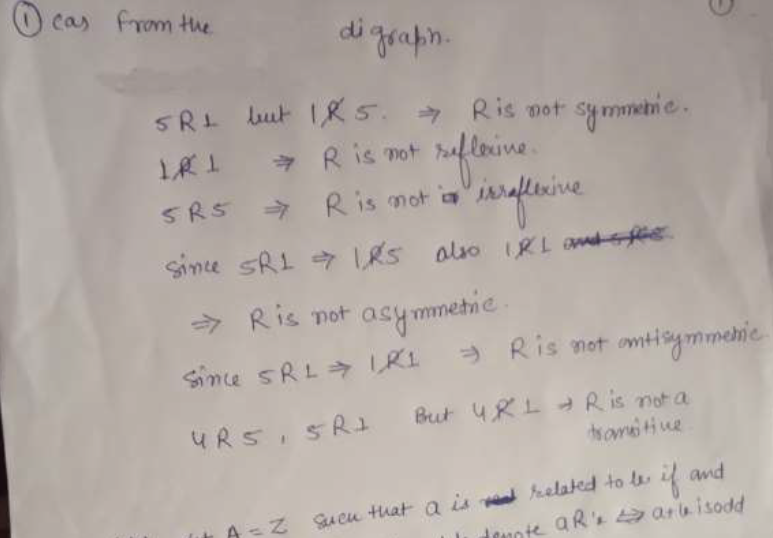 ① cas from the digraph.
5R1 but 1R̸5. ⇒ R is not symmetric.
1R̸1 ⇒ R is not reflexive.
5R5 ⇒ R is not irraflexive
since 5R1 ⇒ 1R̸5 also 1R̸1
⇒ R is not asymmetric.
since 5R1 ⇒ 1R̸1 ⇒ R is not antisymmetric
4R5, 5R1 But 4R̸1 → R is not a
transitive
A = Z such that a is related to b if and
denote aR'b ⇔ a+b is odd